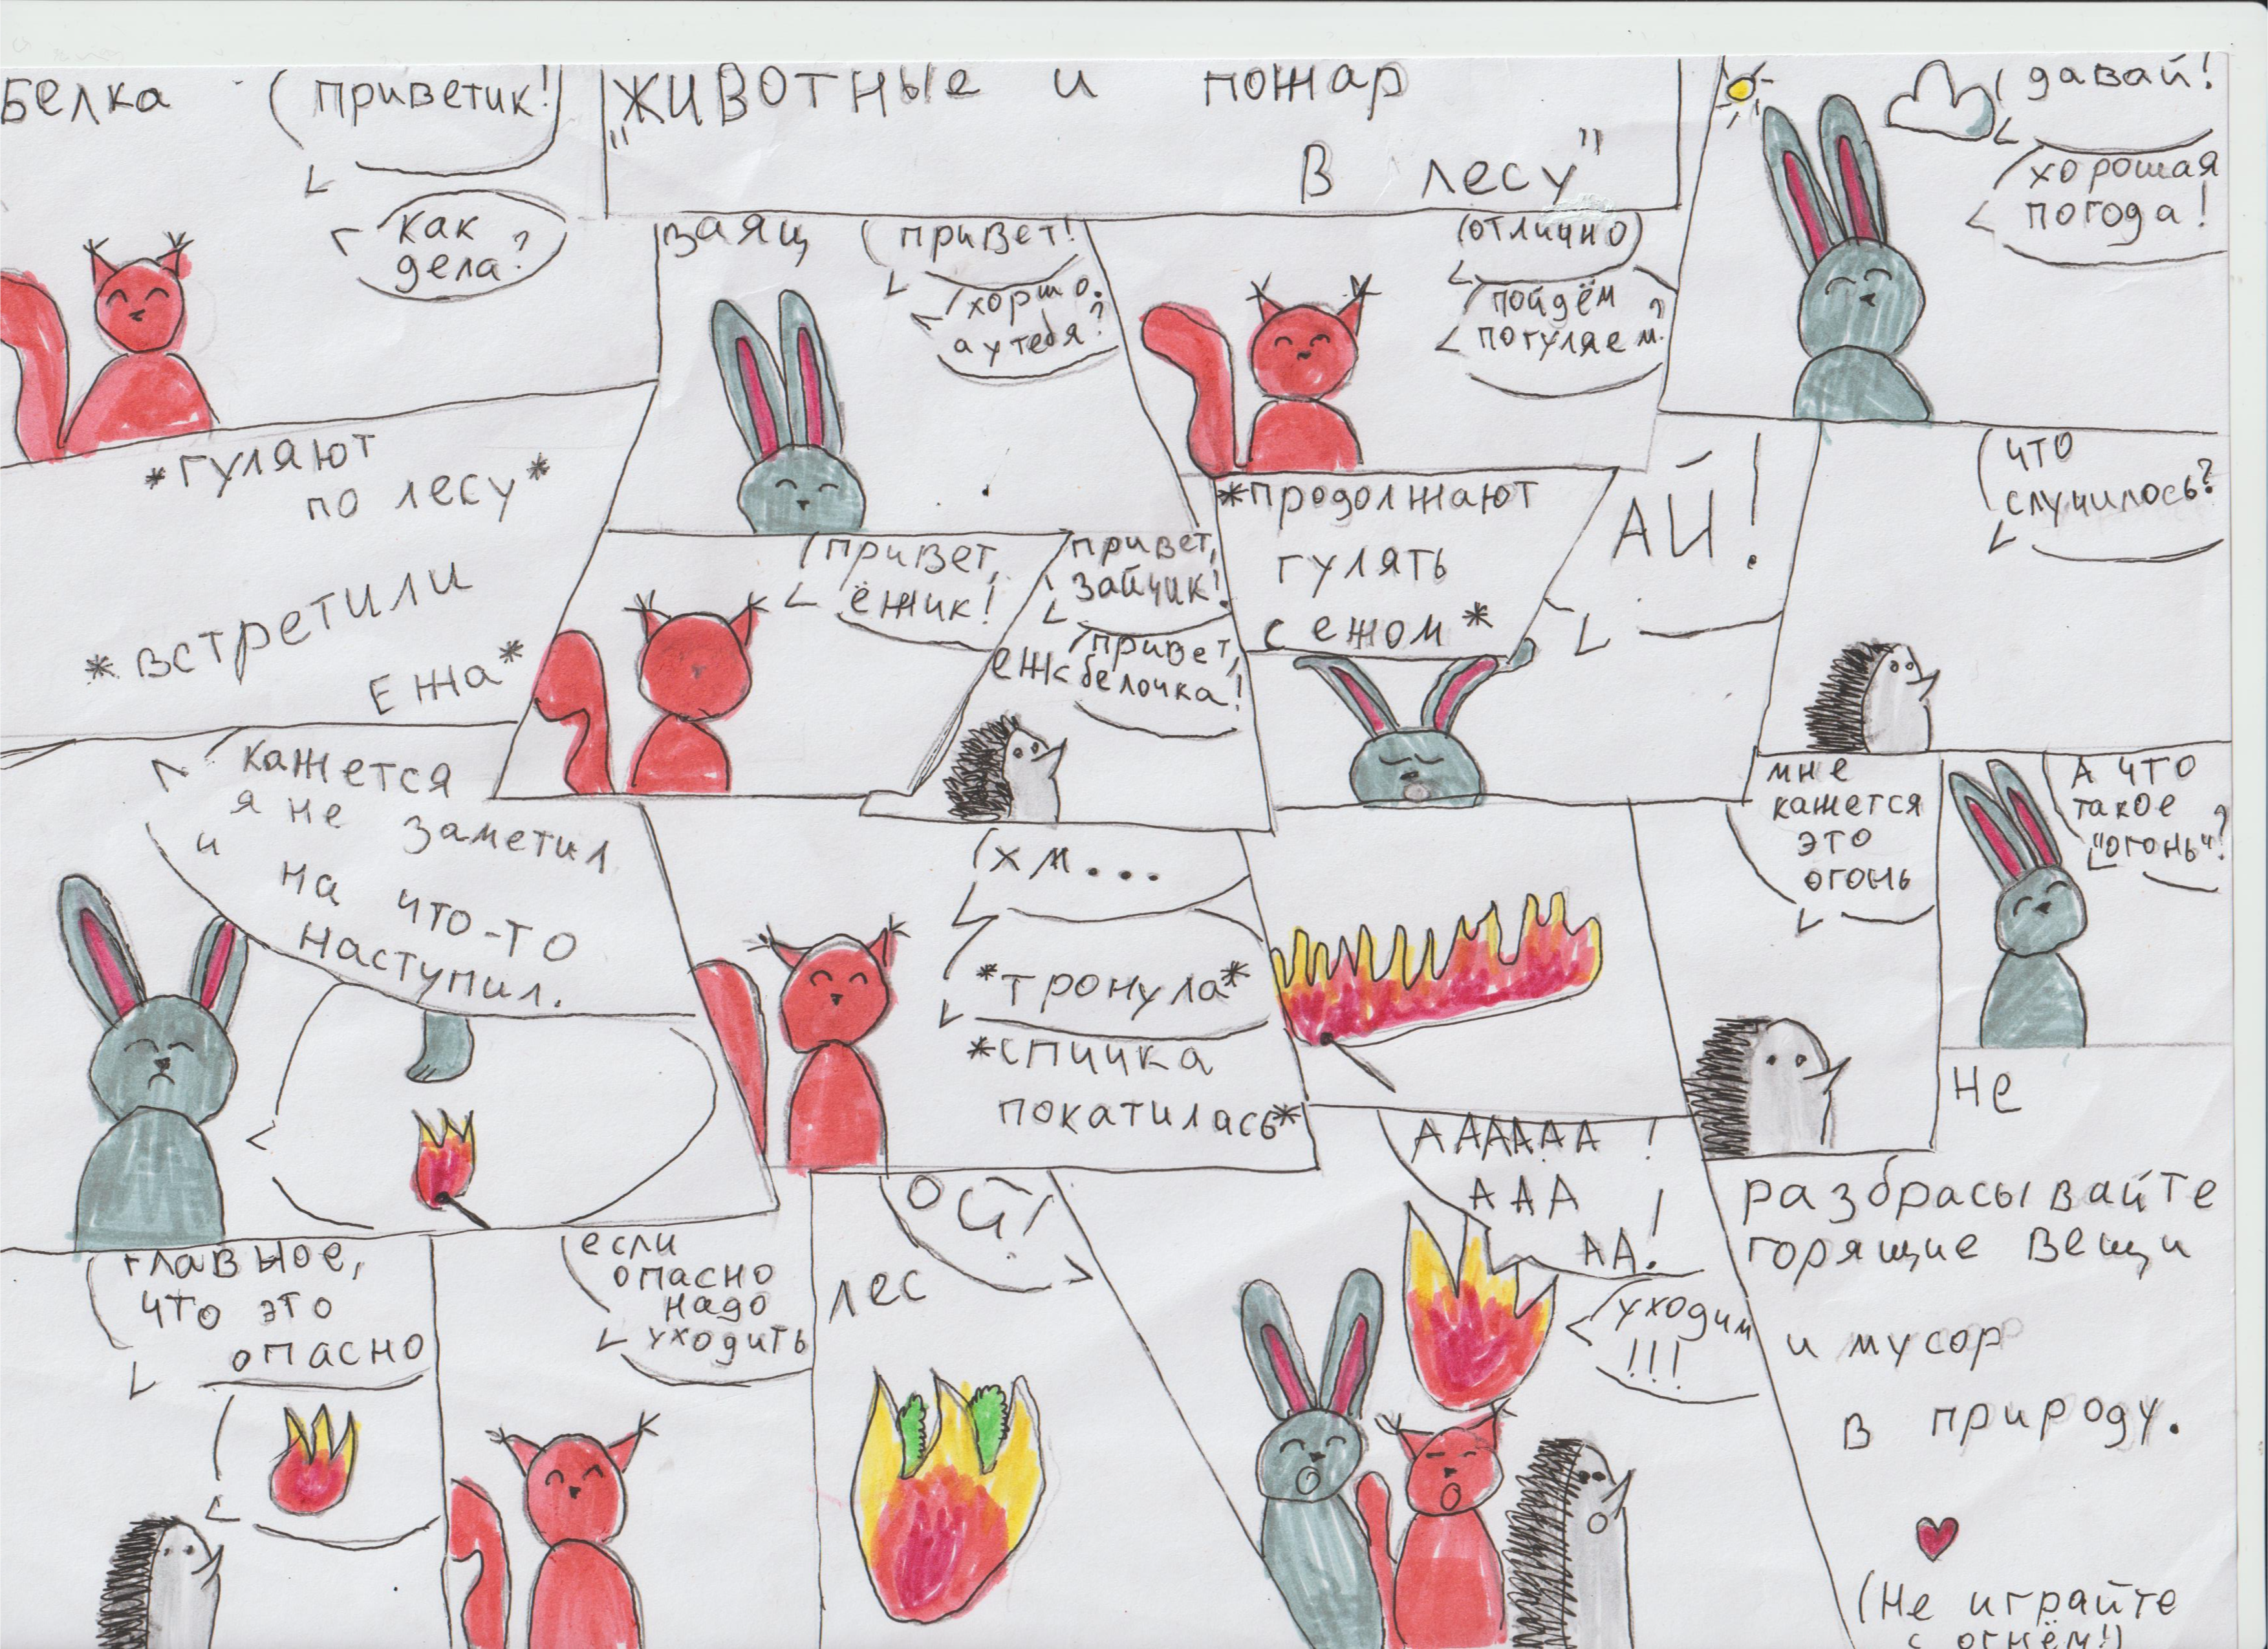 "ЖИВОТНЫЕ и пожар
в лесу"
Белка
приветик!
как
дела?
заяц
привет!
хоршо.
а у тебя?
отлично
пойдём
погуляем?
давай!
хорошая
погода!
*гуляют
по лесу*
*встретили
ежа*
привет,
ёжик!
ёж
привет,
зайчик!
привет,
белочка!
*продолжают
гулять
с ежом*
АЙ!
что
случилось?
кажется
я не заметил
и
на что-то
наступил.
хм...
*тронула*
*спичка
покатилась*
мне
кажется
это
огонь
А что
такое
"огонь"?
главное,
что это
опасно
если
опасно
надо
уходить
ой!
лес
АААААА!
ААА
АА!
уходим
!!!
Не
разбрасывайте
горящие вещи
и мусор
в природу.
(Не играйте
с огнём!)